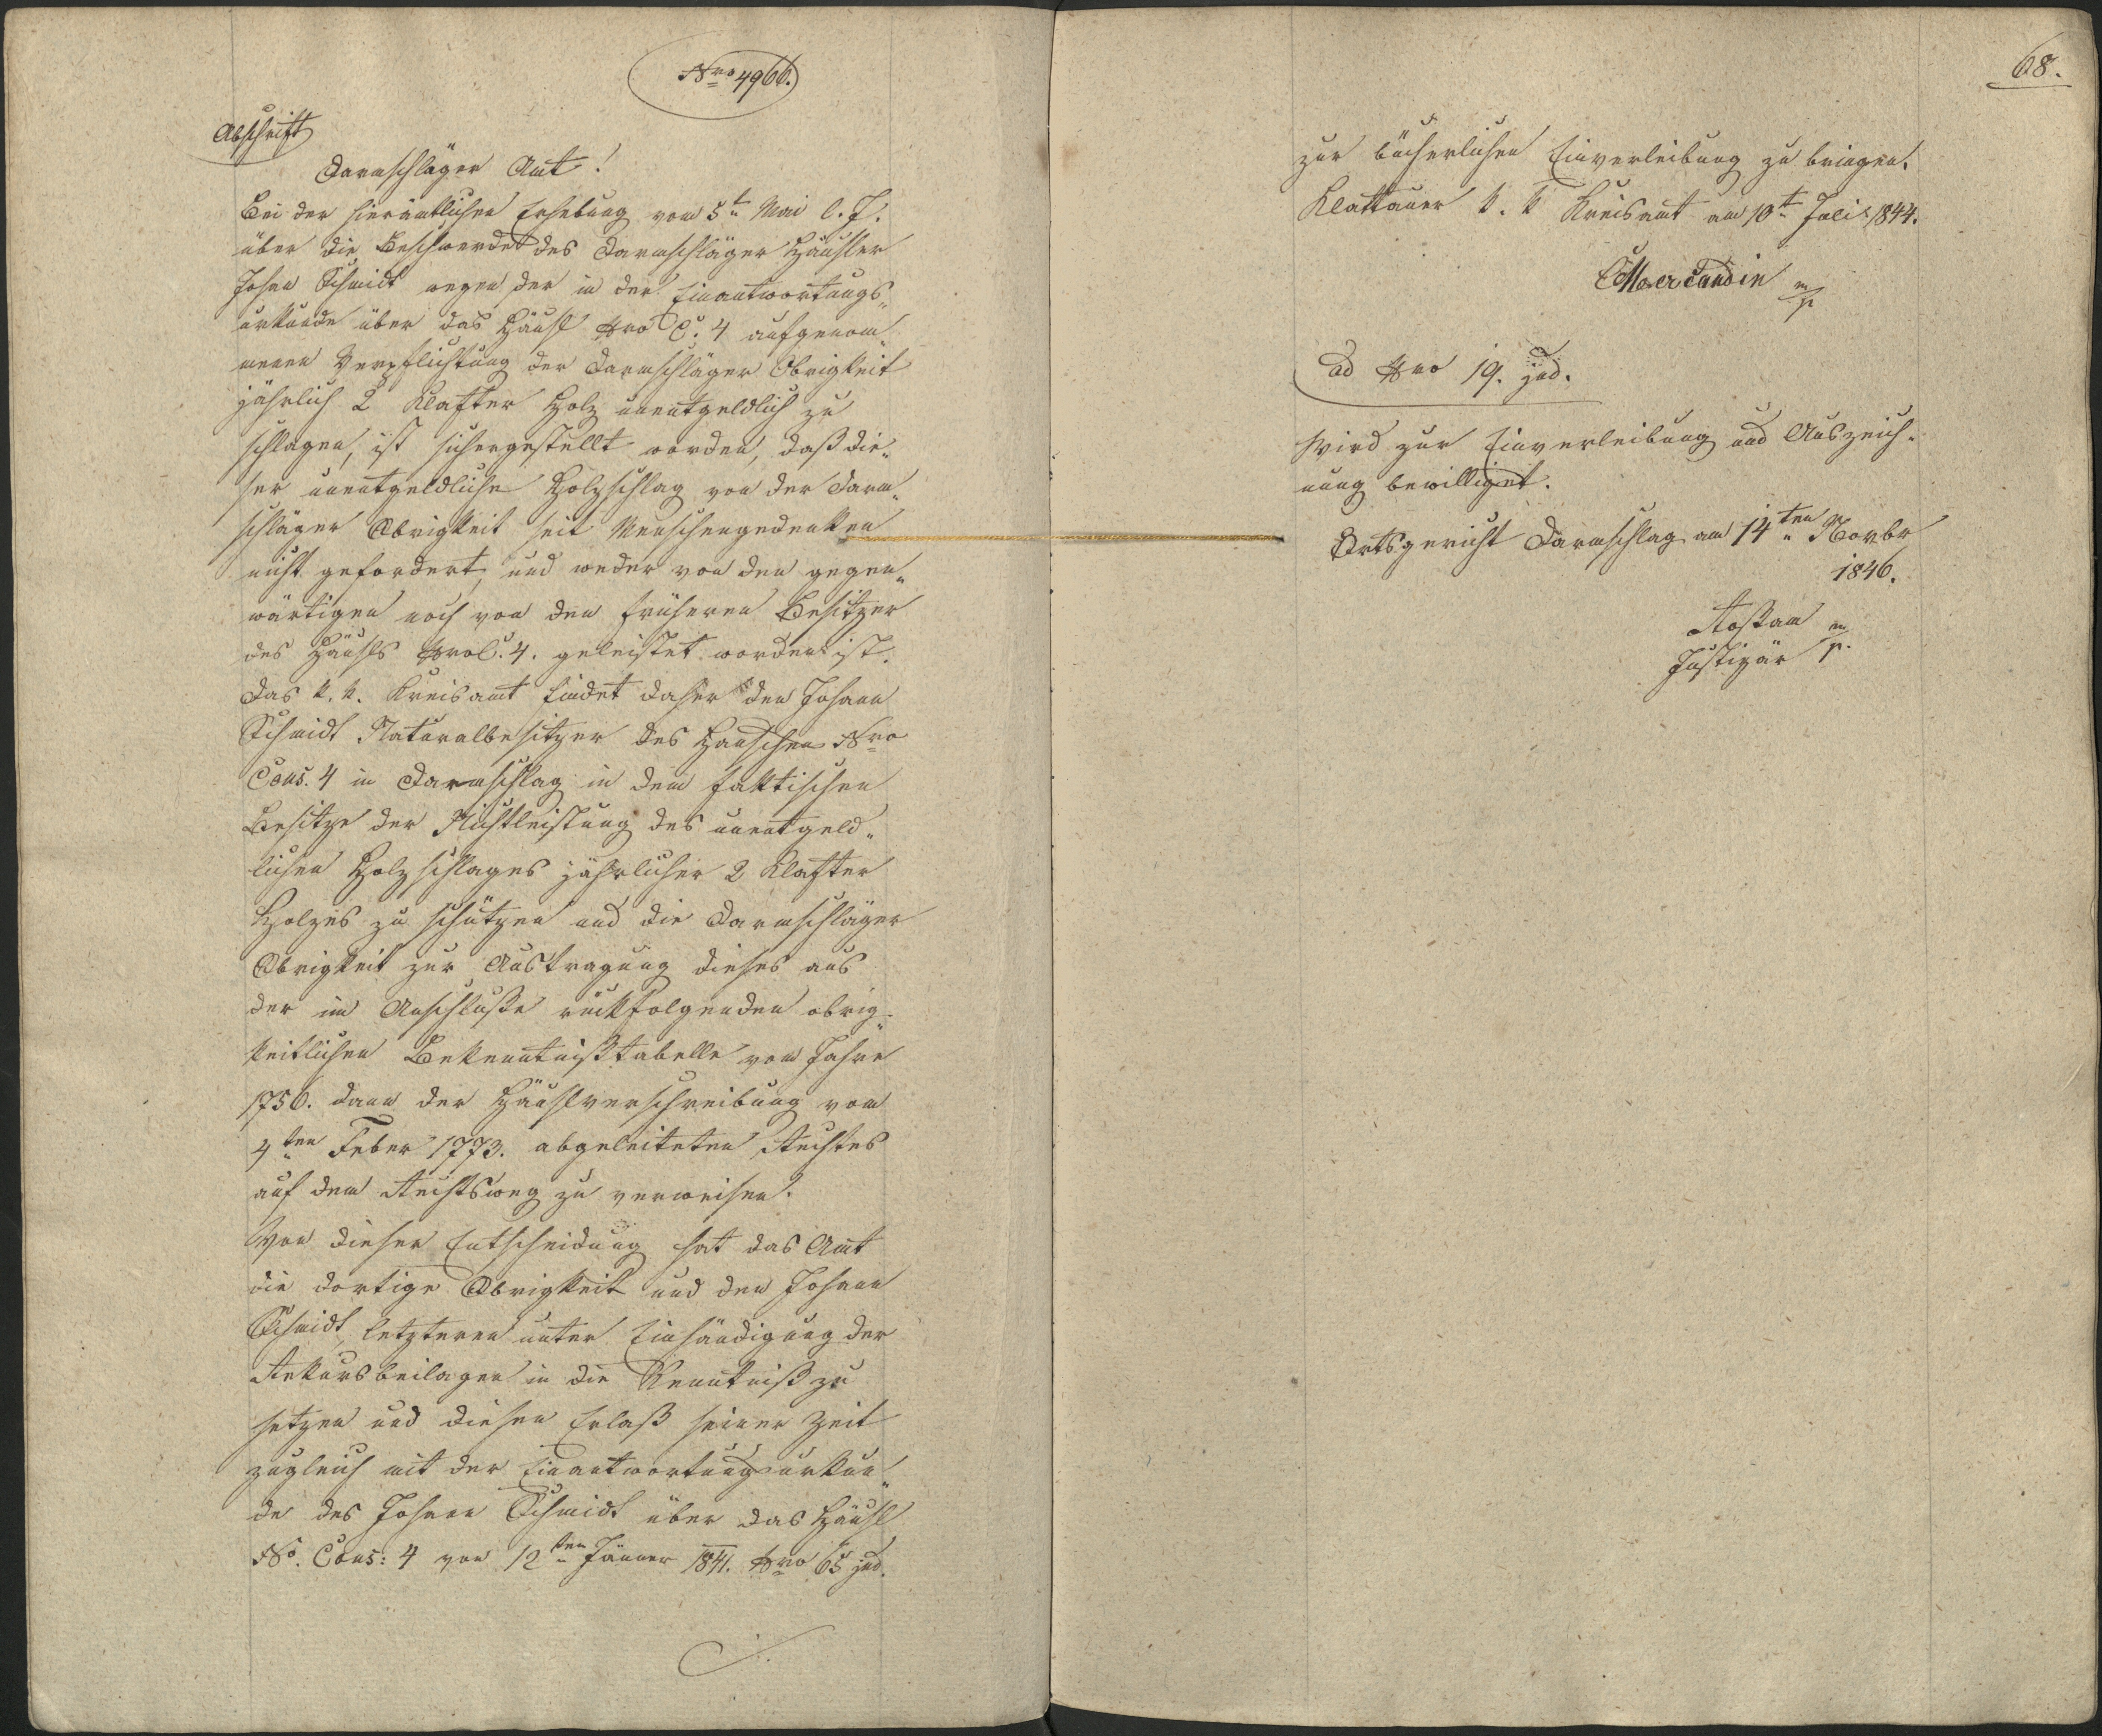 Nro 4966.
Abschrift
Darmschläger Amt!
Bei der hierämtlichen Erhebung vom 5t Mai l. J.
über die Beschwerde des Darmschläger Häusler
Johann Schmidt wegen der in der Einantwortungs„
urkunde über das Häusl Nro C. 4 aufgenom„
menen Verpflichtung der Darmschläger Obrigkeit
jährlich 2 Klafter Holz unentgeldlich zu
schlagen, ist sichergestellt worden, daß die„
ser unentgeldliche Holzschlag von der Darm„
schläger Obrigkeit seit Menschengedenken
nicht gefordert, und weder von den gegen„
wärtigen noch von den früheren Besitzer
des Häusls Nro C. 4. geleistet worden ist.
Das k. k. Kreisamt findet daher den Johann
Schmidt Naturalbesitzer des Häuschen Nro
Cons. 4 in Darmschlag in dem faktischen
Besitze der Nichtleistung des unentgeld„
lichen Holzschlages jährlicher 2 Klafter
Holzes zu schützen und die Darmschläger
Obrigkeit zur Austragung dieses aus
der im Anschluße rückfolgenden obrig„
keitlichen Bekenntnißtabelle vom Jahre
1756. dann der Häuslverschreibung vom
4ten Feber 1773. abgeleiteten Rechtes
auf den Rechtsweg zu verweisen.
Von dieser Entscheidung hat das Amt
die dortige Obrigkeit und den Johann
Schmidt, letzteren unter Einhändigung der
Rekursbeilagen in die Kenntniß zu
setzen und diesen Erlaß seiner Zeit
zugleich mit der Einantwortungsurkun„
de des Johann Schmidt über das Häusl
No. Cons: 4 von 12ten Jänner 1841. Nro 65 jud.
68.
zur bücherlichen Einverleibung zu bringen.
Klattauer k. k Kreisamt am 10t Juli 1844.
Mercandin m/p
ad Nro 19. jud.
Wird zur Einverleibung und Auszeich„
nung bewilliget.
Ortsgericht Darmschlag am 14ten Novbr
1846.
Roßam m/p.
Justiziär